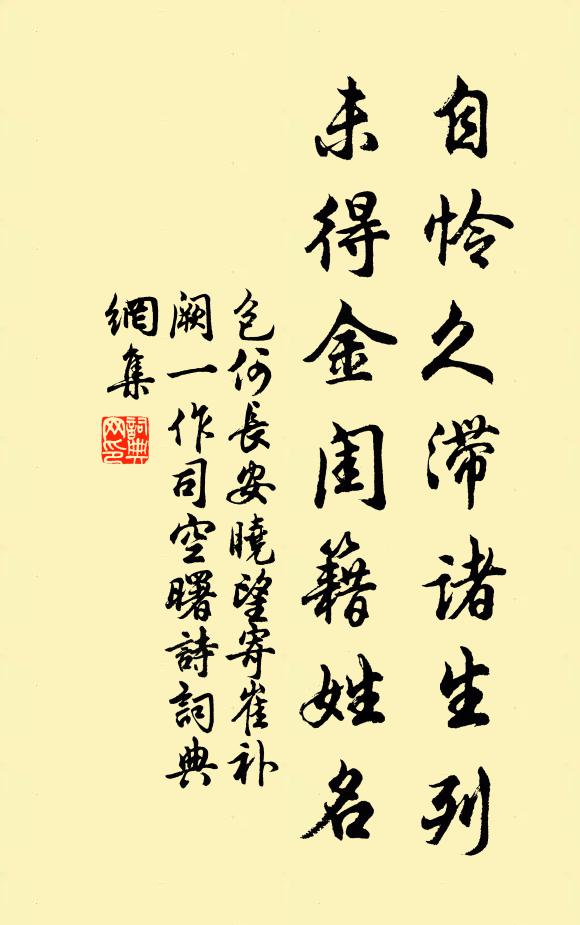 自怜久滞诸生列
未得金闺籍姓名
包何長安曉望寄崔补
阙一作司空曙詩詞典
網集
詞典
网印